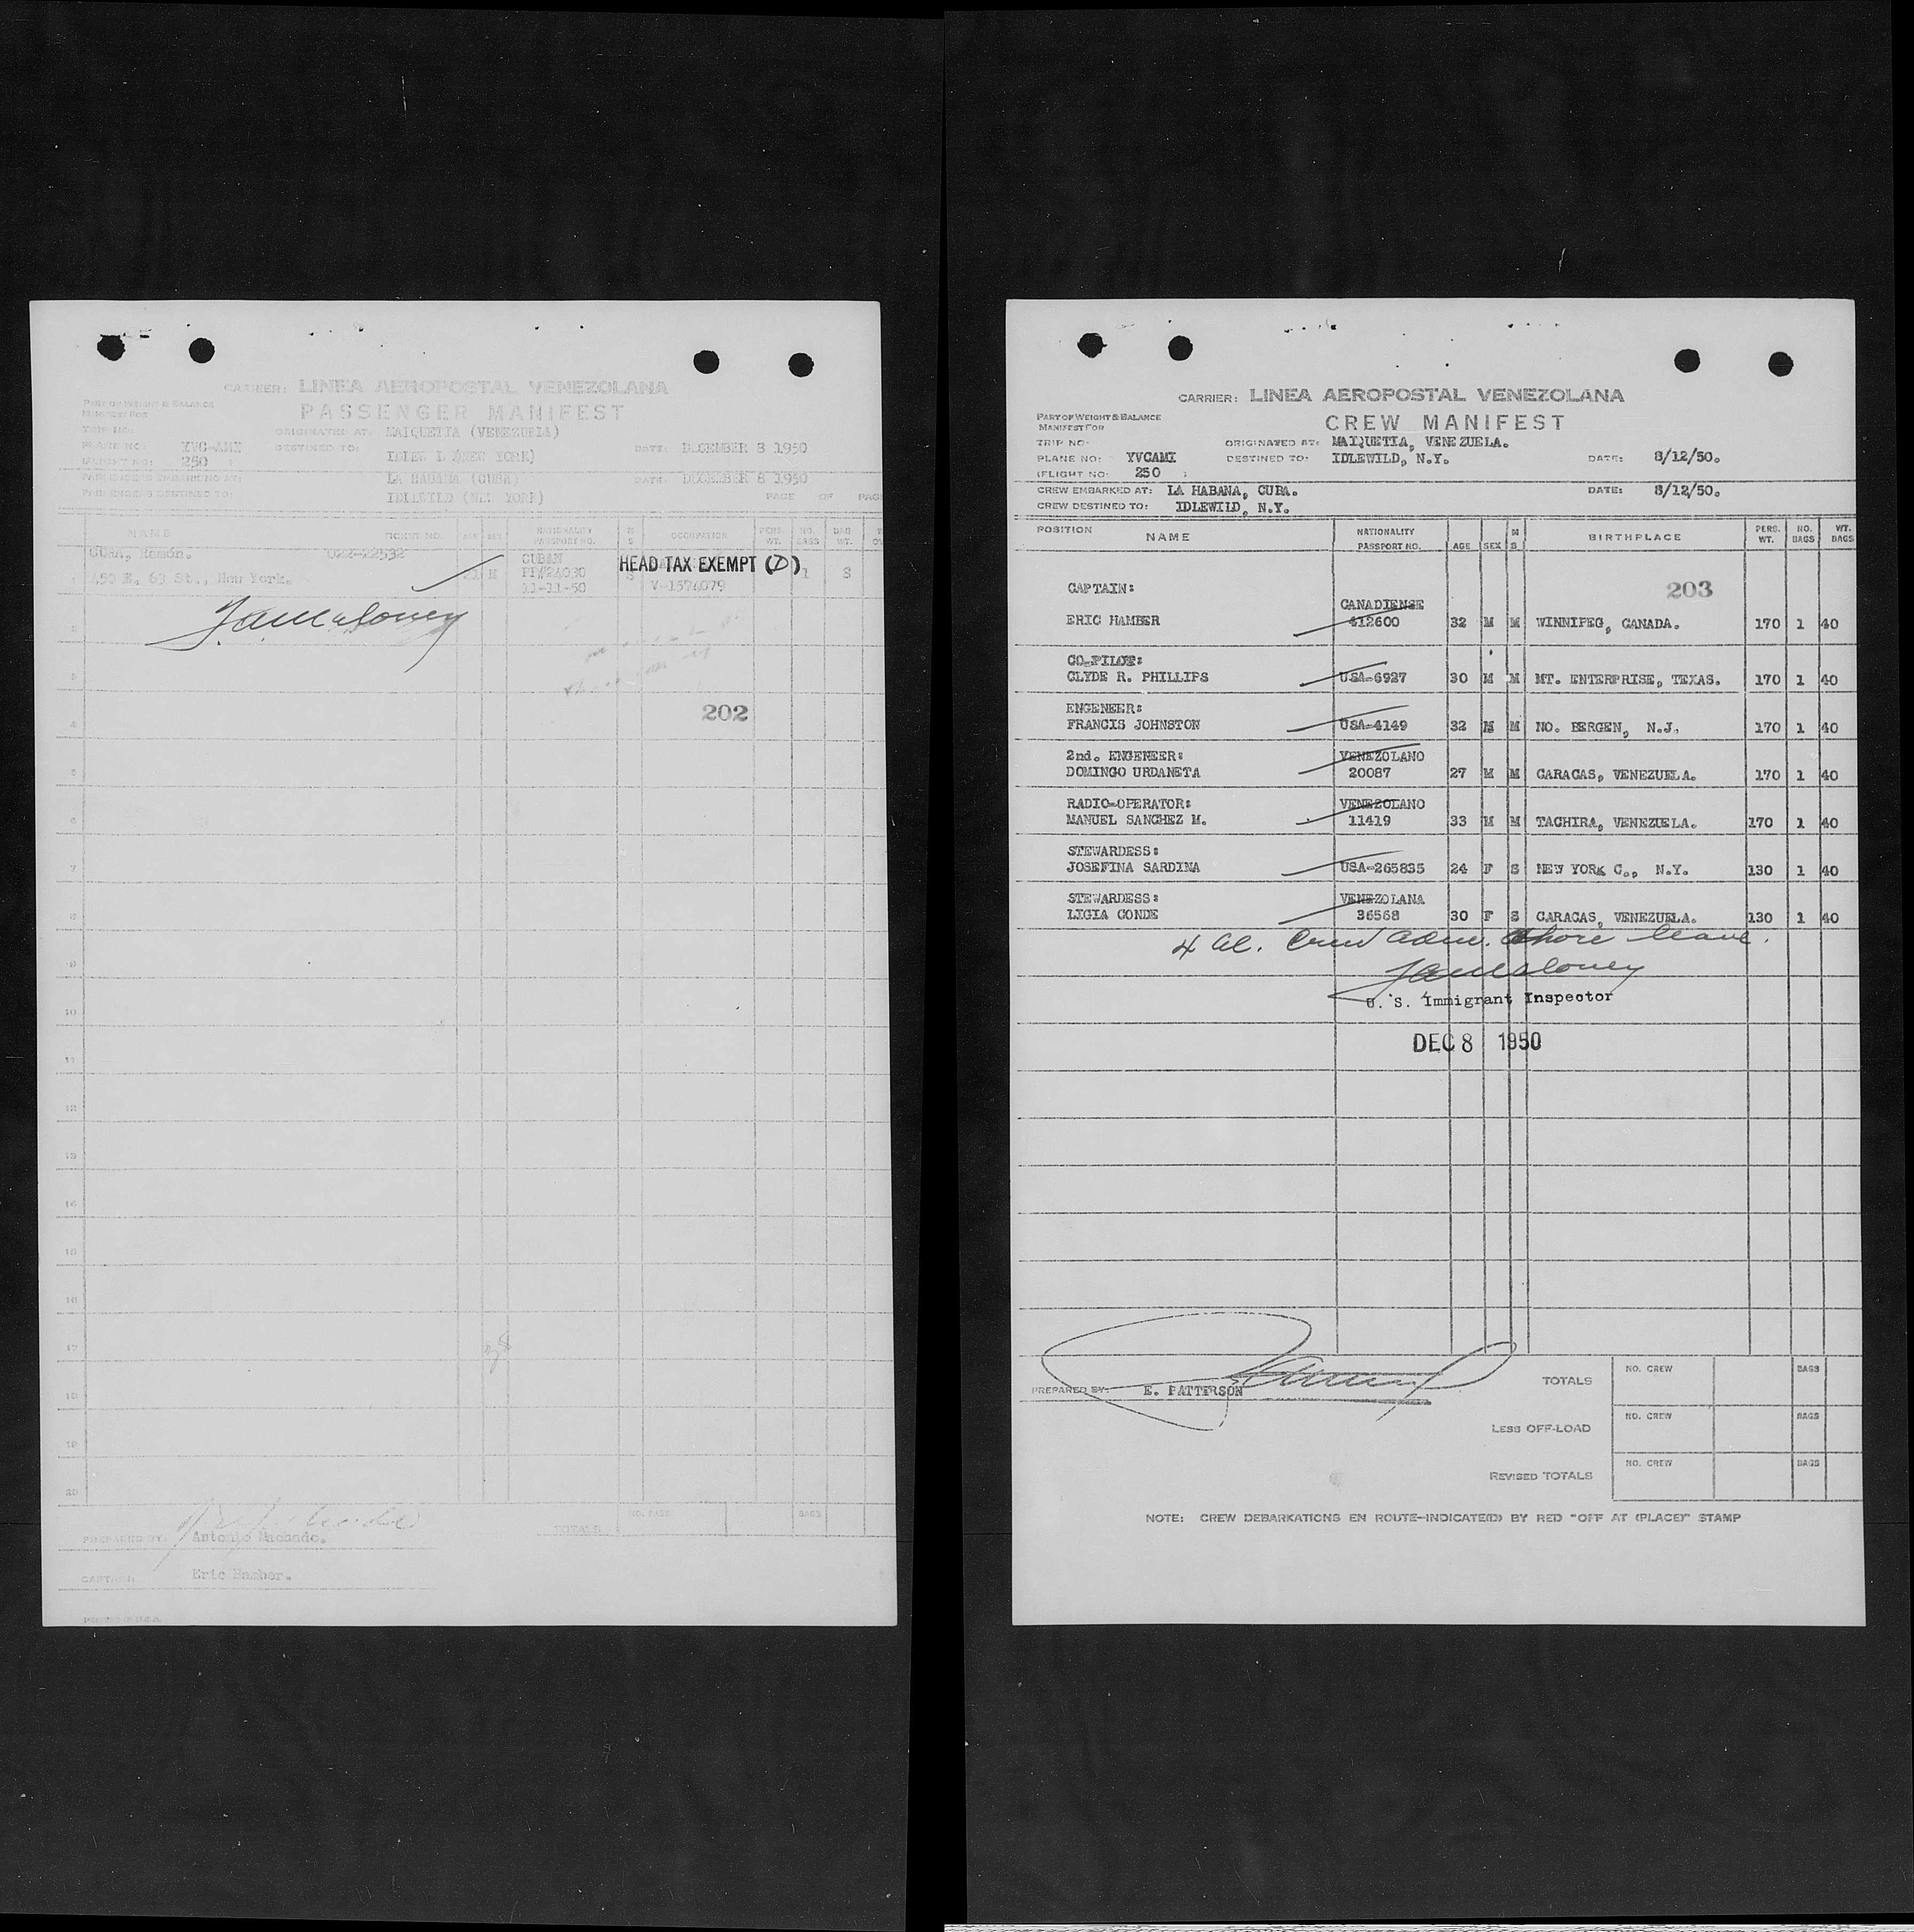 CARRIER: LINEA AEROPOSTAL VENEZOLANA
PART OF WEIGHT & BALANCE
MANIFEST FOR
PASSENGER MANIFEST
TRIP NO:
ORIGINATED AT: MAIQUETIA (VENEZUELA)
PLANE NO: YVC-AMI
DESTINED TO: IDLEWILD (NEW YORK)
DATE: DECEMBER 8 1950
FLIGHT NO: 250
PASSENGERS EMBARKING AT: LA HABANA (CUBA)
DATE: DECEMBER 8 1950
PASSENGERS DESTINED TO: IDLEWILD (NEW YORK)
PAGE OF PAG
NAME TICKET NO. AGE SEX NATIONALITY PASSPORT NO. M S OCCUPATION PERS. WT. NO. BAGS BAG WT.
Ramón. 022-22532 CUBAN
HEAD TAX EXEMPT (D)
1 450 E. 63 St., New York. M PP#24030 1 8
11-11-50 V-1574079
2
3
202
4
5
6
7
8
9
10
11
12
13
14
15
16
17
18
19
20
TOTALS NO. PASS BAGS
PREPARED BY: Antonio Machado.
CAPTAIN: Eric Hamber.
PRINTED IN U.S.A.
CARRIER: LINEA AEROPOSTAL VENEZOLANA
PART OF WEIGHT & BALANCE
MANIFEST FOR
CREW MANIFEST
TRIP NO. ORIGINATED AT: MAIQUETIA, VENEZUELA.
PLANE NO: YVCAMI DESTINED TO: IDLEWILD, N.Y. DATE: 8/12/50.
(FLIGHT NO: 250 )
CREW EMBARKED AT: LA HABANA, CUBA. DATE: 8/12/50.
CREW DESTINED TO: IDLEWILD, N.Y.
POSITION NAME NATIONALITY PASSPORT NO. AGE SEX M S BIRTHPLACE PERS. WT. NO. BAGS WT. BAGS
CAPTAIN: 203
CANADIENSE
ERIC HAMBER 412600 32 M M WINNIPEG, CANADA. 170 1 40
CO-PILOT:
CLYDE R. PHILLIPS USA-6927 30 M M MT. ENTERPRISE, TEXAS. 170 1 40
ENGENEER:
FRANCIS JOHNSTON USA-4149 32 M M NO. BERGEN, N.J. 170 1 40
2nd. ENGENEER: VENEZOLANO
DOMINGO URDANETA 20087 27 M M CARACAS, VENEZUELA. 170 1 40
RADIO-OPERATOR: VENEZOLANO
MANUEL SANCHEZ M. 11419 33 M M TACHIRA, VENEZUELA. 170 1 40
STEWARDESS:
JOSEFINA SARDINA USA-265835 24 F S NEW YORK C., N.Y. 130 1 40
STEWARDESS: VENEZOLANA
LIGIA CONDE 36568 30 F S CARACAS, VENEZUELA. 130 1 40
4 al. Crew adm. shore leave.
U. S. Immigrant Inspector
DEC 8 1950
PREPARED BY: E. PATTERSON
TOTALS NO. CREW BAGS
LESS OFF-LOAD NO. CREW BAGS
REVISED TOTALS NO. CREW BAGS
NOTE: CREW DEBARKATIONS EN ROUTE-INDICATE(D) BY RED "OFF AT (PLACE)" STAMP